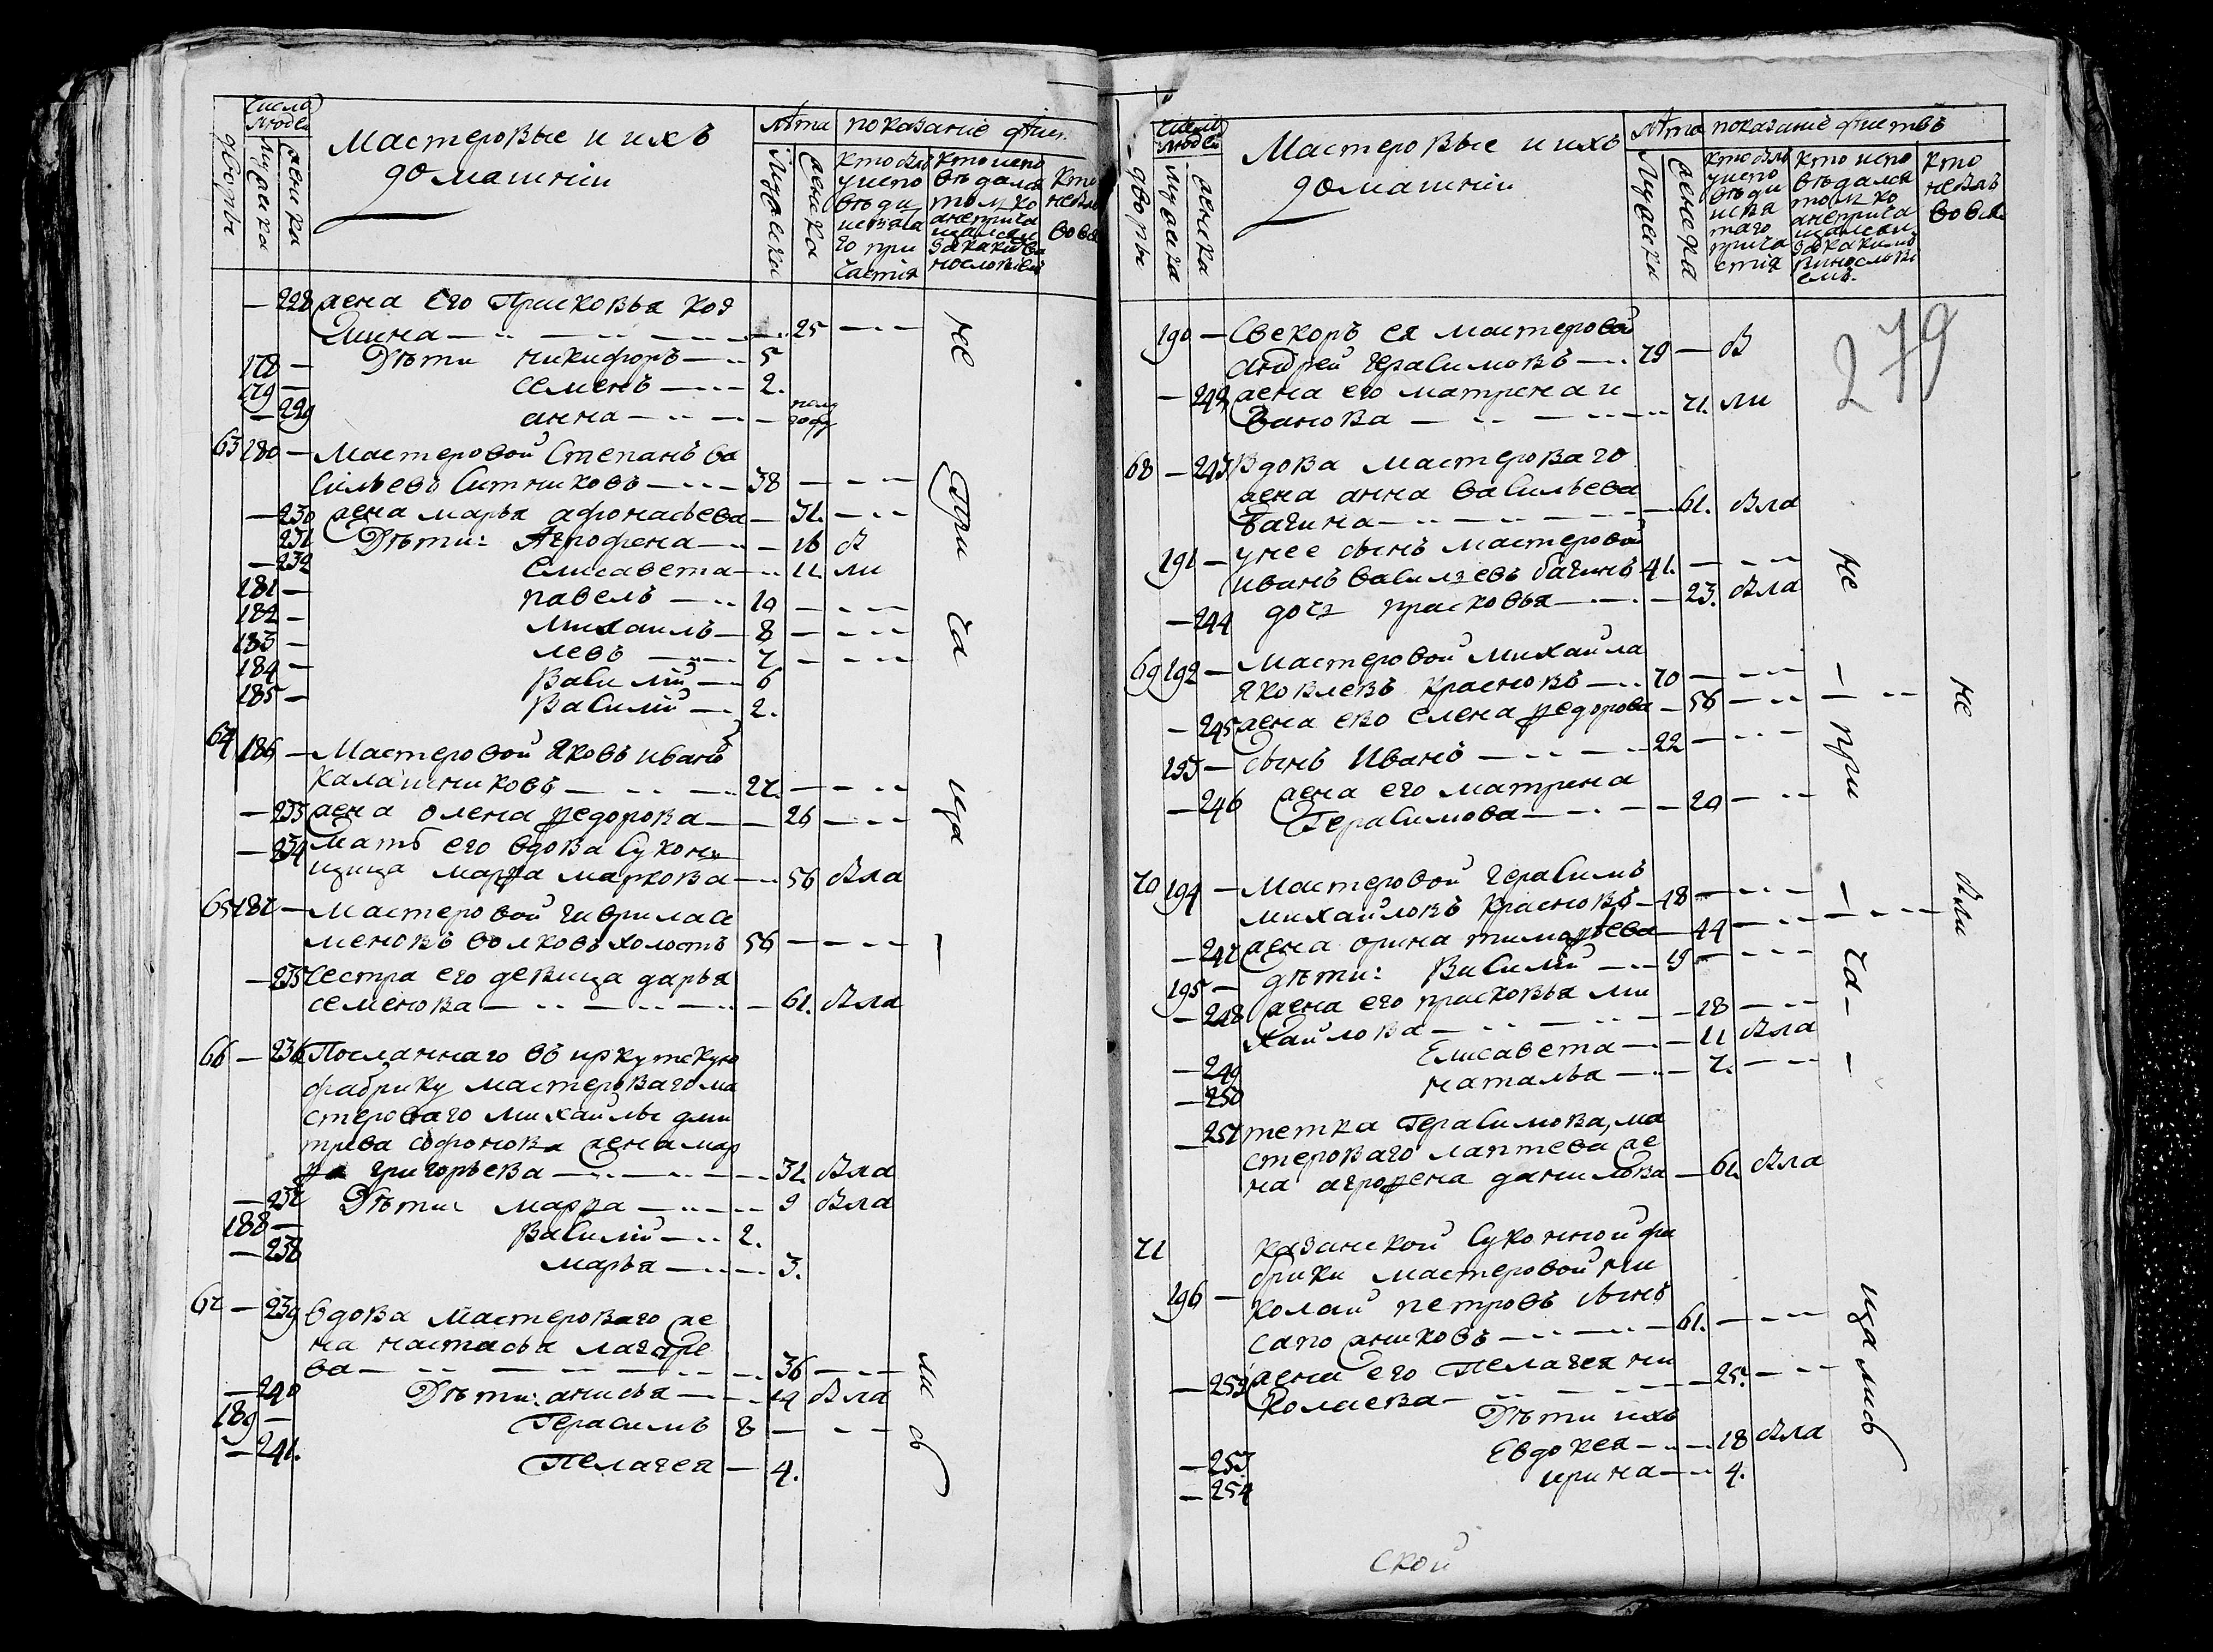 Числа людей
дворы
мужеска
женска
Мастеровые и ихъ
домашнии
лѣта
показание дѣис
мужеска
женска
кто былъ
у испо
вѣди
и свята
го при
частия
кто испо
вѣдался
толко
а не прича
щался и
за каким ви
нословием
кто
не былъ
во все
— 228 жена его Прасковья коз
мина — 25 —
178 — Дѣти никифоръ — 5
179 — семенъ — 2.
— 229 анна — полгода
63 180 — Мастеровой Степанъ ва
сильевъ Ситниковъ — 38 —
— 230 жена марья афонасьева — 31. —
231 Дѣти: Агрофена — 16 б
— 232 Елисавета — 11. ли
181 — павелъ — 10 —
182 — Михаилъ — 8 —
183 — левъ — 7 —
184 — Василий — 6
185 — Василий — 2.
64 186 — Мастеровой Яковъ ивано
калашниковъ — 27. —
— 233 жена олена федорова — 26 —
— 234 Мать его вдова Суконн
щица марфа маркова — 56 была
65 187 — Мастеровой гаврила се
меновъ волковъ холостъ 56 —
— 235 Сестра его девица дарья
семенова — 61. была
66 — 236 Посланнаго въ иркутскую
фабрику мастероваго ма
стероваго михаилы дми
трева софонова жена мар
фа григорьева — 31. была
— 237 Дѣти марфа — 9 была
188 — Василий — 2.
— 238 марья — 3.
67 — 239 вдова Мастероваго же
на настасья лазаре
ва — 36 —
— 240 Дѣти: анисья — 14 была
189 — Герасимъ 8 —
— 241. Пелагея — 4.
не
При
ча
ща
ли
сь
Число людей
дворы
мужеска
женска
Мастеровые и ихъ
домашнии
лѣта
показание дѣиствъ
мужеска
женска
кто былъ
у испо
вѣди
и свя
таго
прича
стия
кто испо
вѣдался
толко
а не прича
щался и
за какимъ
винослови
емъ.
кто
не былъ
во все
279
190 — Свекоръ ея мастеровой
Андрей Герасимовъ — 79 — б
— 242 жена его матрена и
ванова — 71. ли
68 — 243 Вдова мастероваго
жена анна васильева
Багина — 61. была
191 — у нее сынъ мастеровой
иванъ васильевъ багинъ 41. —
— 244 дочь прасковья — 23. была
69 192 — Мастеровой михаила
Яковлевъ Красновъ — 70 —
— 245 жена ево елена федорова — 56 —
193 — сынъ Иванъ — 22 —
— 246 жена его матрина
Герасимова — 20 —
70 194 — Мастеровой герасимъ
михаиловъ Красновъ — 48 —
— 247 жена орина тимофеева — 44 —
195 — дѣти: Василий — 19 —
— 248 жена его прасковья ми
хайлова — 18 —
— 249 Елисавета — 11 была
— 250 наталья — 7. —
— 251 тетка Герасимова, ма
стероваго лаптева же
на агрофена данилова — 61. была
71 Казанской Суконной фа
брики мастеровой ни
196 — колай петровъ сынъ
сапожниковъ — 61. —
— 252 жена его Пелагея ни
колаева — 25. —
Дѣти ихъ
— 253 Евдокея — 18 была
— 254 ирина — 4.
не
при
ча
щались
не
были
ской